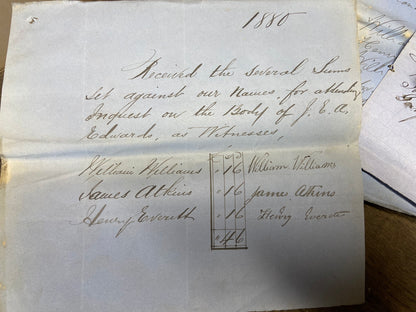 5
1880
Received the several Sums
Set against our Names, for attending
Inquest on the Body of J. E. A.
Edwards, as Witnesses,
William Williams " 1 6 William Williams
James Atkins " 1 6 James Atkins
Henry Everett " 1 6 Henry Everett
" 4 6